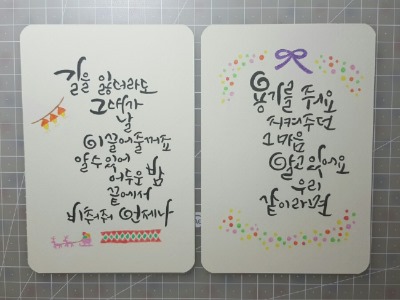 길을 잃더라도
그대가
날
이끌어줄꺼죠
알수있어
어두운 밤
끝에서
비춰줘 언제나
용기를 주어요
지켜주던
그 마음
알고 있어요
우리
같이라면